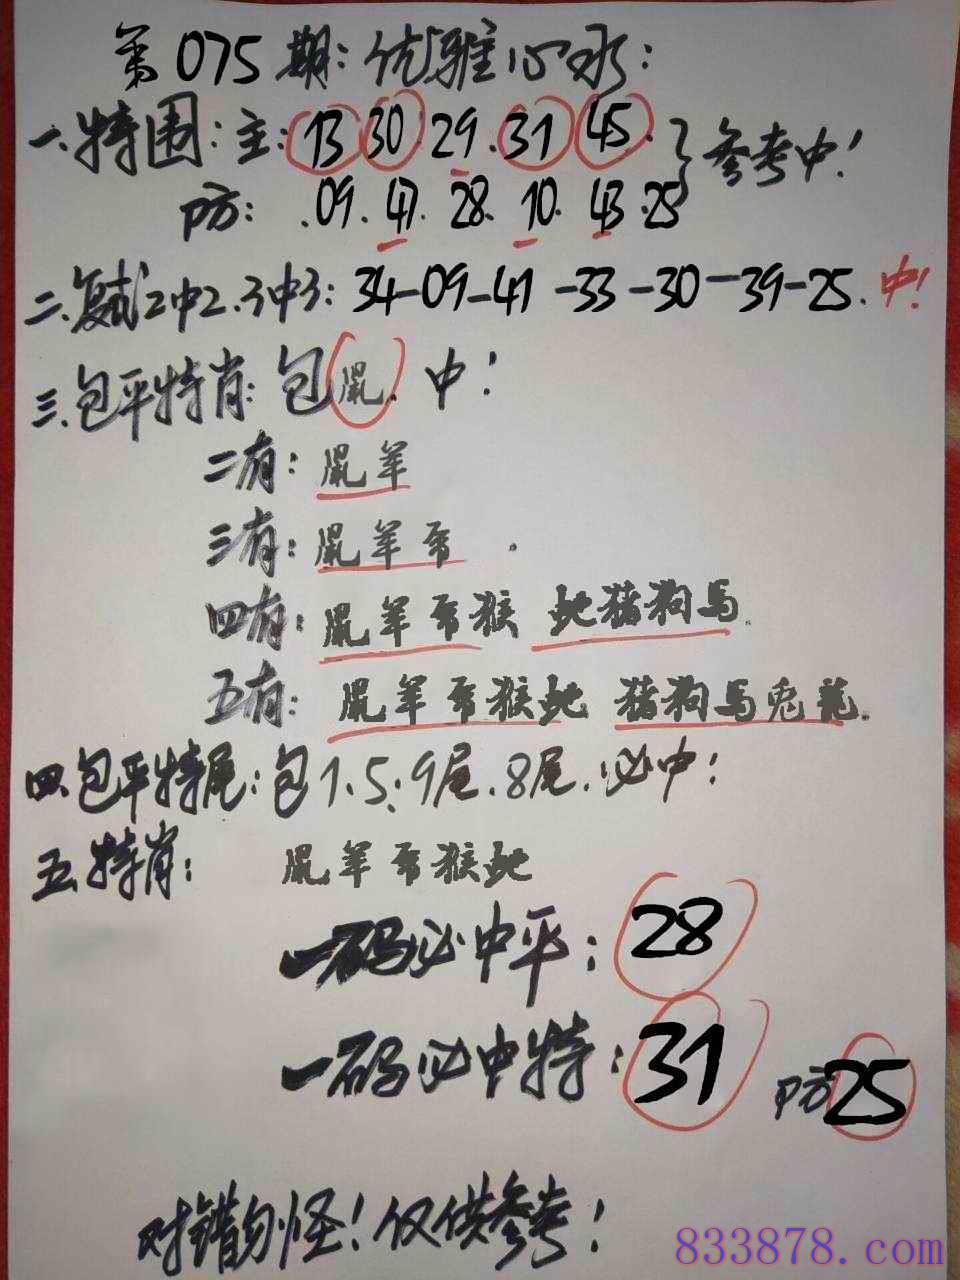 第075期:优雅心水:
一.特围:主:13 30.29.31 45.}参考中!
防:.09.47.28.10.43.25
二.复试2中2.3中3:34-09-41-33-30-39-25.中!
三.包平特肖:包鼠.中!
二有:鼠羊
三有:鼠羊.
四有:鼠羊猴 蛇猪狗马.
五有:鼠羊猴蛇 猪狗马兔龙.
四.包平特尾:包1.5.9尾.8尾.必中!
五.特肖:鼠羊猴蛇
一码必中平:28
一码必中特:31 防25
对错勿怪!仅供参考!
833878.com